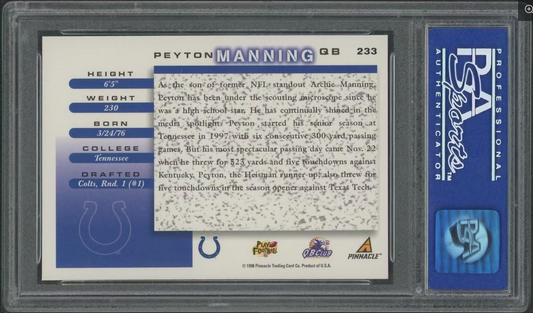 PEYTON MANNING QB 233
HEIGHT
6'5"
WEIGHT
230
BORN
3/24/76
COLLEGE
Tennessee
DRAFTED
Colts, Rnd. 1 (#1)
As the son of former NFL standout Archie Manning,
Peyton has been under the scouting microscope since he
was a high school star. He has continually shined in the
media spotlight. Peyton started his senior season at
Tennessee in 1997 with six consecutive 300-yard passing
games. But his most spectacular passing day came Nov. 22
when he threw for 523 yards and five touchdowns against
Kentucky. Peyton, the Heisman runner up, also threw for
five touchdowns in the season opener against Texas Tech.
PLAY FOOTBALL
QB CLUB
PINNACLE
© 1998 Pinnacle Trading Card Co. Product of U.S.A.
PSA
Sports™
PROFESSIONAL
SPORTS
AUTHENTICATOR
PSA